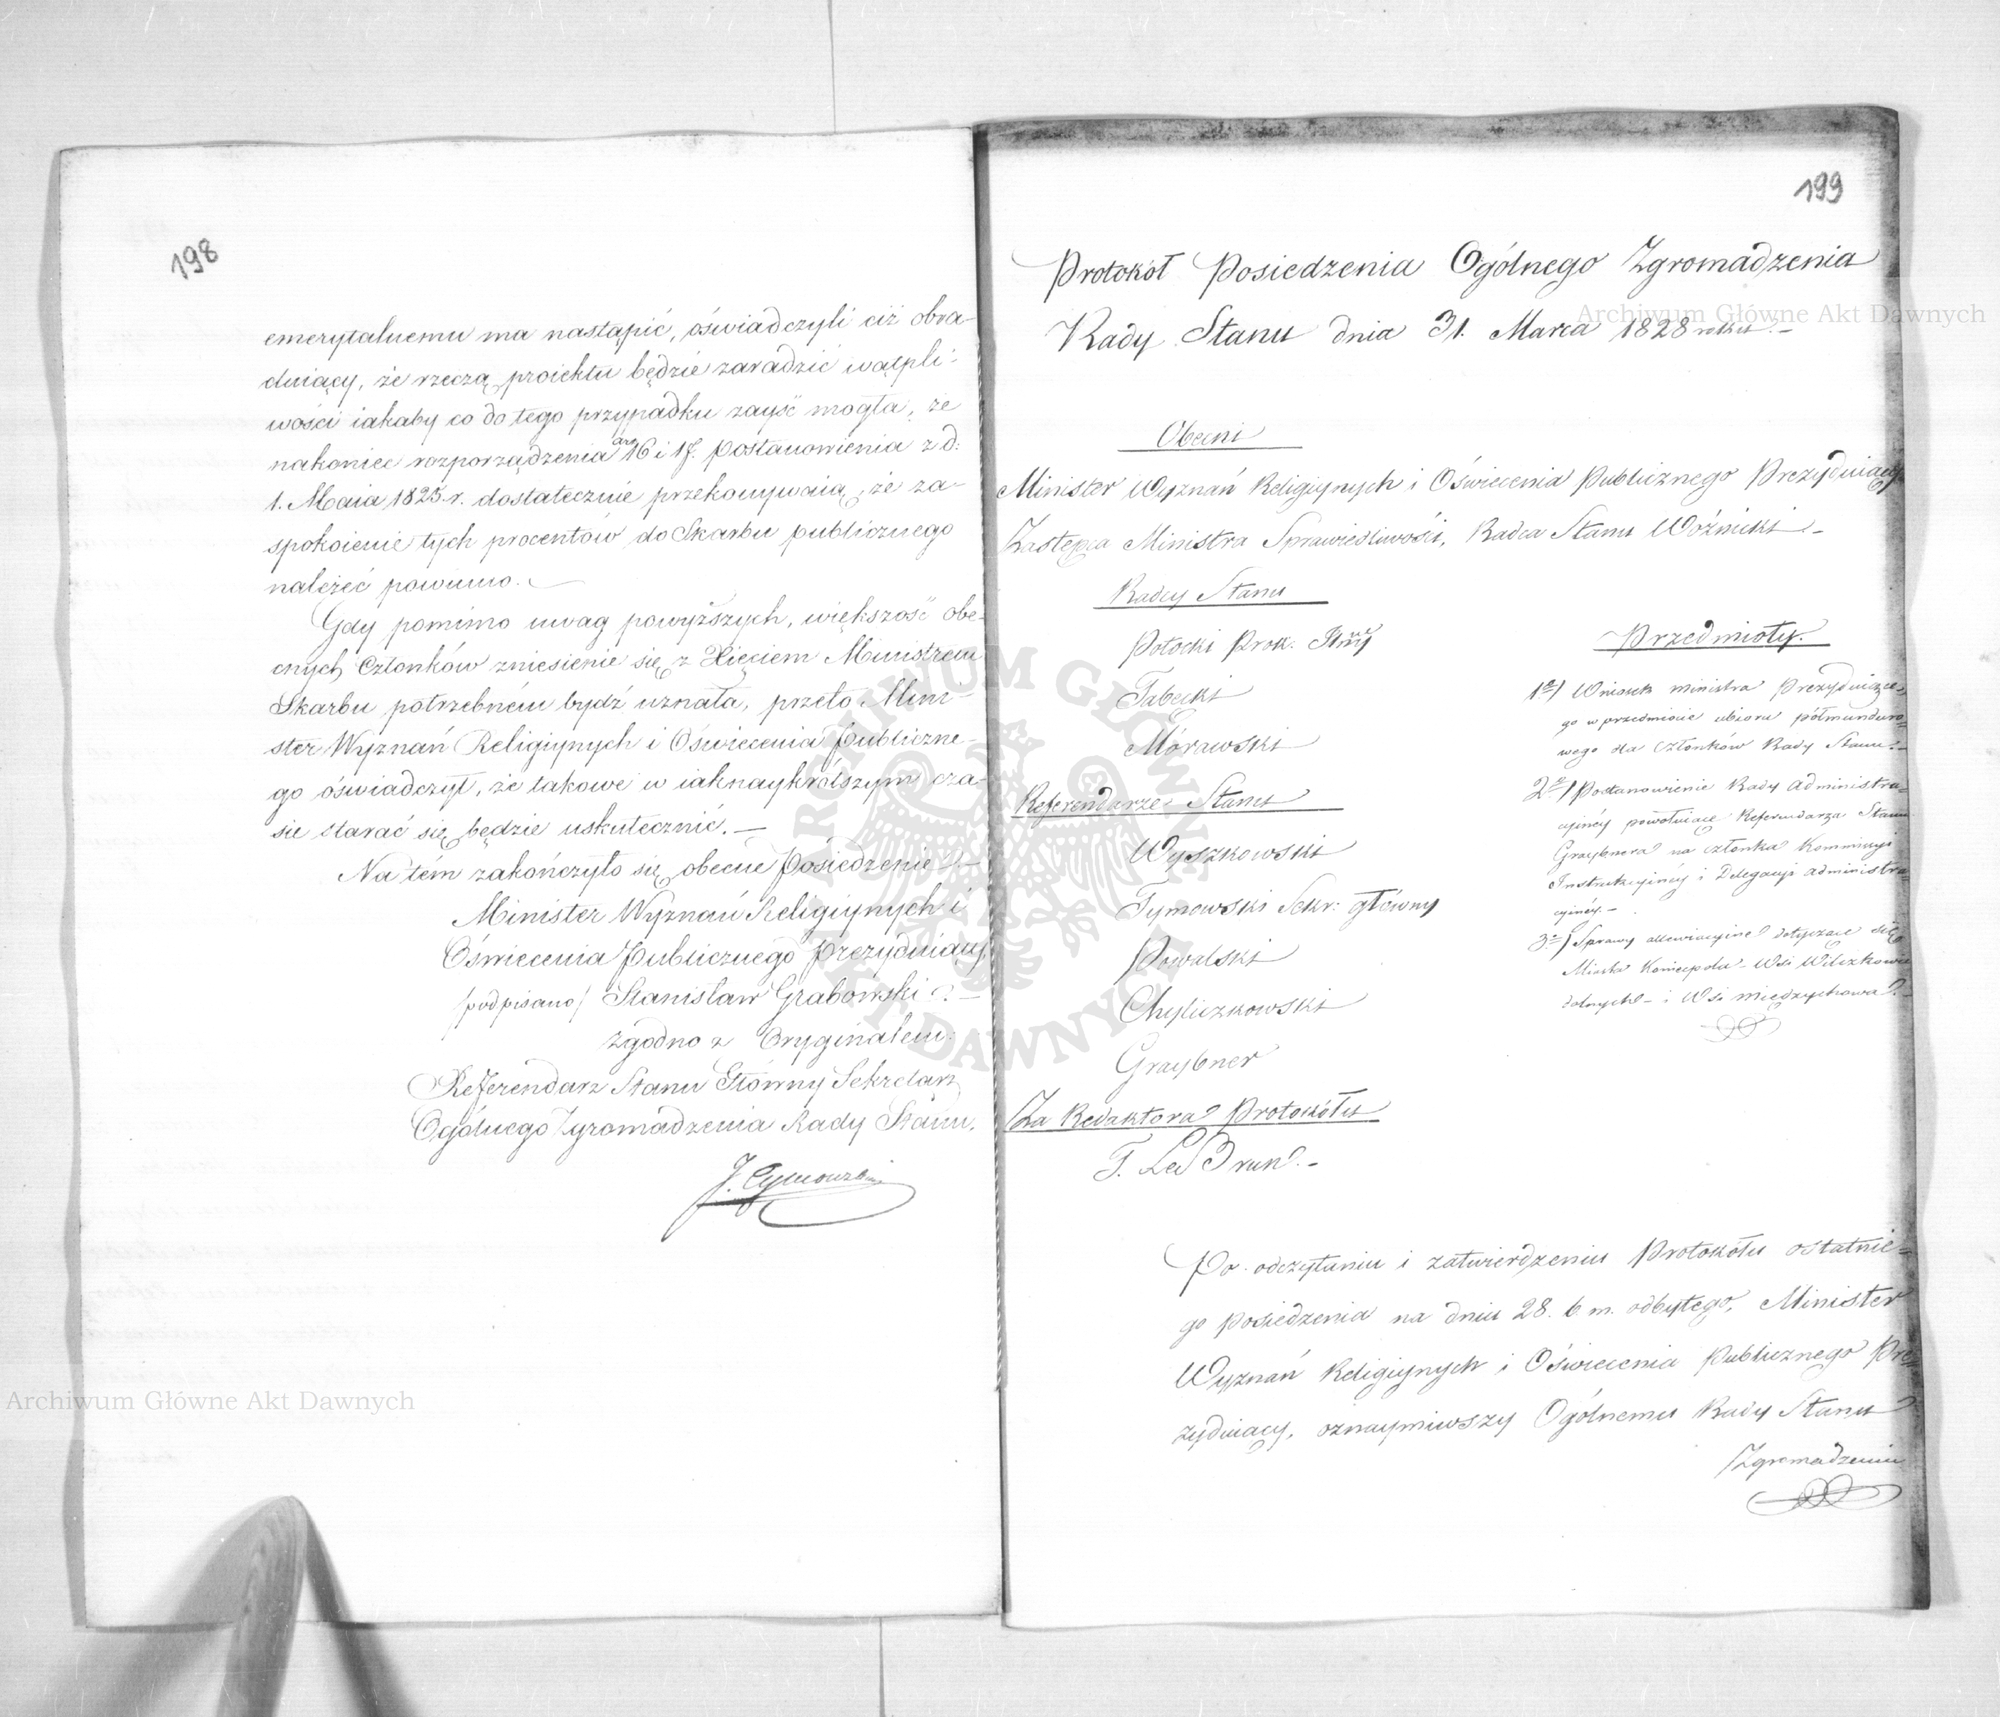 198
emerytalnemu ma nastąpić, oświadczyli ciż obra-
duiący, że rzeczą proiektu będzie zaradzić wątpli-
wości iakaby co do tego przypadku zayść mogła, że
nakoniec rozporządzenia art 16 i 17. Postanowienia z d:
1. Maia 1825 r. dostatecznie przekonywaią, że za-
spokoienie tych procentów do Skarbu publicznego
należeć powinno. –
Gdy pomimo uwag powyższych, większość obe-
cnych Członków zniesienie się z Xięciem Ministrem
Skarbu potrzebném bydź uznała, przeto Mini-
ster Wyznań Religiynych i Oświecenia Publiczne-
go oświadczył, że takowe w iaknaykrótszym cza-
sie starać się będzie uskutecznić. –
Na tém zakończyło się obecne Posiedzenie –
Minister Wyznań Religiynych i
Oświecenia Publicznego Prezyduiący
/podpisano/ Stanisław Grabowski –
zgodno z Oryginałem:
Referendarz Stanu Główny Sekretarz
Ogólnego Zgromadzenia Rady Stanu.
J. Tymowski
199
Protokół Posiedzenia Ogólnego Zgromadzenia
Rady Stanu dnia 31. Marca 1828 roku. –
Obecni
Minister Wyznań Religiynych i Oświecenia Publicznego Prezyduiący
Zastępca Ministra Sprawiedliwości, Radca Stanu Woźnicki –
Radcy Stanu
Potocki Prok.
Tabęcki
Morawski
Referendarze Stanu
Wyszkowski
Tymowski Sekr: główny
Powalski
Chyliczkowski
Graybner
Za Redaktora Protokółu
F. Le Brun. –
Przedmioty.
1º/ Wniosek ministra Prezyduiące-
go w przedmiocie ubioru półmunduro-
wego dla członków Rady Stanu. –
2º/ Postanowienie Rady Administra-
cyinéy powołuiące Referendarza Stanu
Graybnera na członka Kommissyi
Instrukcyinéy i Delegacyi administra-
cyinéy. –
3º/ Sprawy allewiacyine dotyczące się
Miasta Koniecpola – Wsi Wilczkowic
dolnych – i Wsi Międzychowa. –
Po odczytaniu i zatwierdzeniu Protokółu ostatnie-
go posiedzenia na dniu 28. b. m. odbytego, Minister
Wyznań Religiynych i Oświecenia Publicznego Pre-
zyduiący, oznaymiwszy Ogólnemu Rady Stanu
Zgromadzeniu
Archiwum Główne Akt Dawnych
Archiwum Główne Akt Dawnych
ARCHIWUM GŁÓWNE AKT DAWNYCH